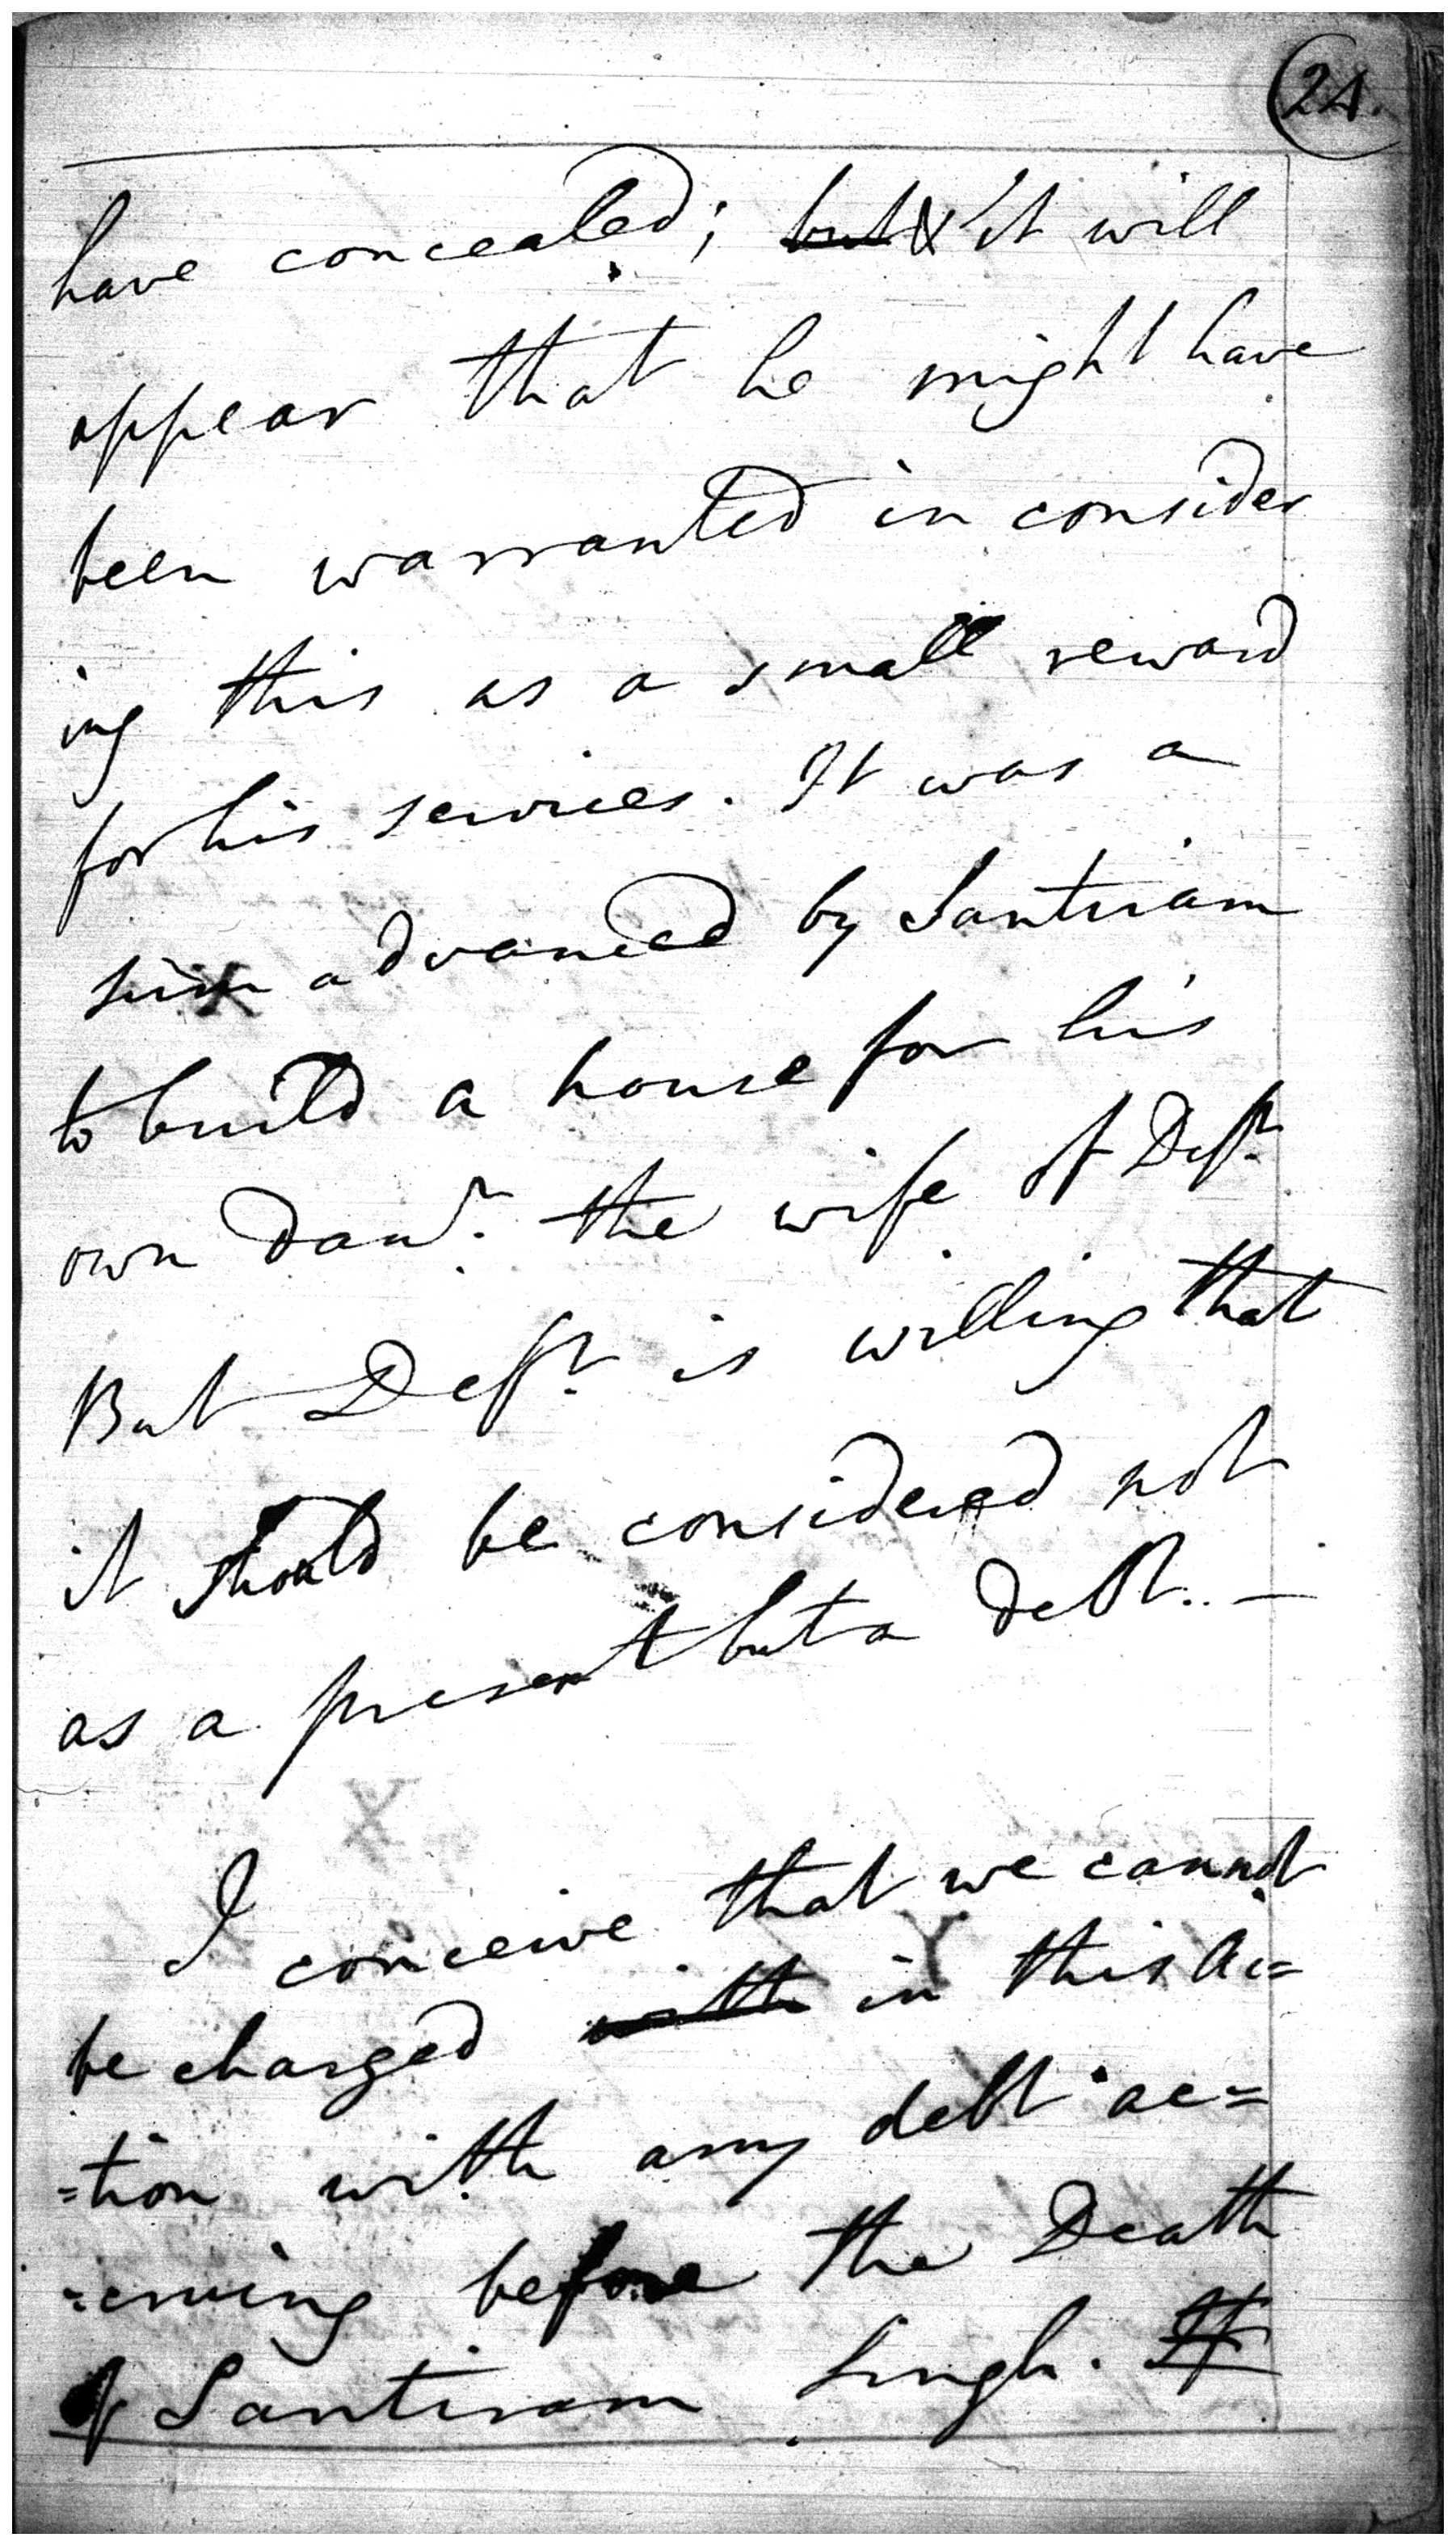 24.
have concealed; but & it will
appear that he might have
been warranted in consider
ing this as a small reward
for his services. It was a
sum advanced by Santiram
to build a house for his
own daur. the wife of Deft.
But Deft. is willing that
it should be considered not
as a present but a debt. —
I conceive that we cannot
be charged with in this Ac=
=tion with any debt ac=
=cruing before the Death
of Santiram Singh. If